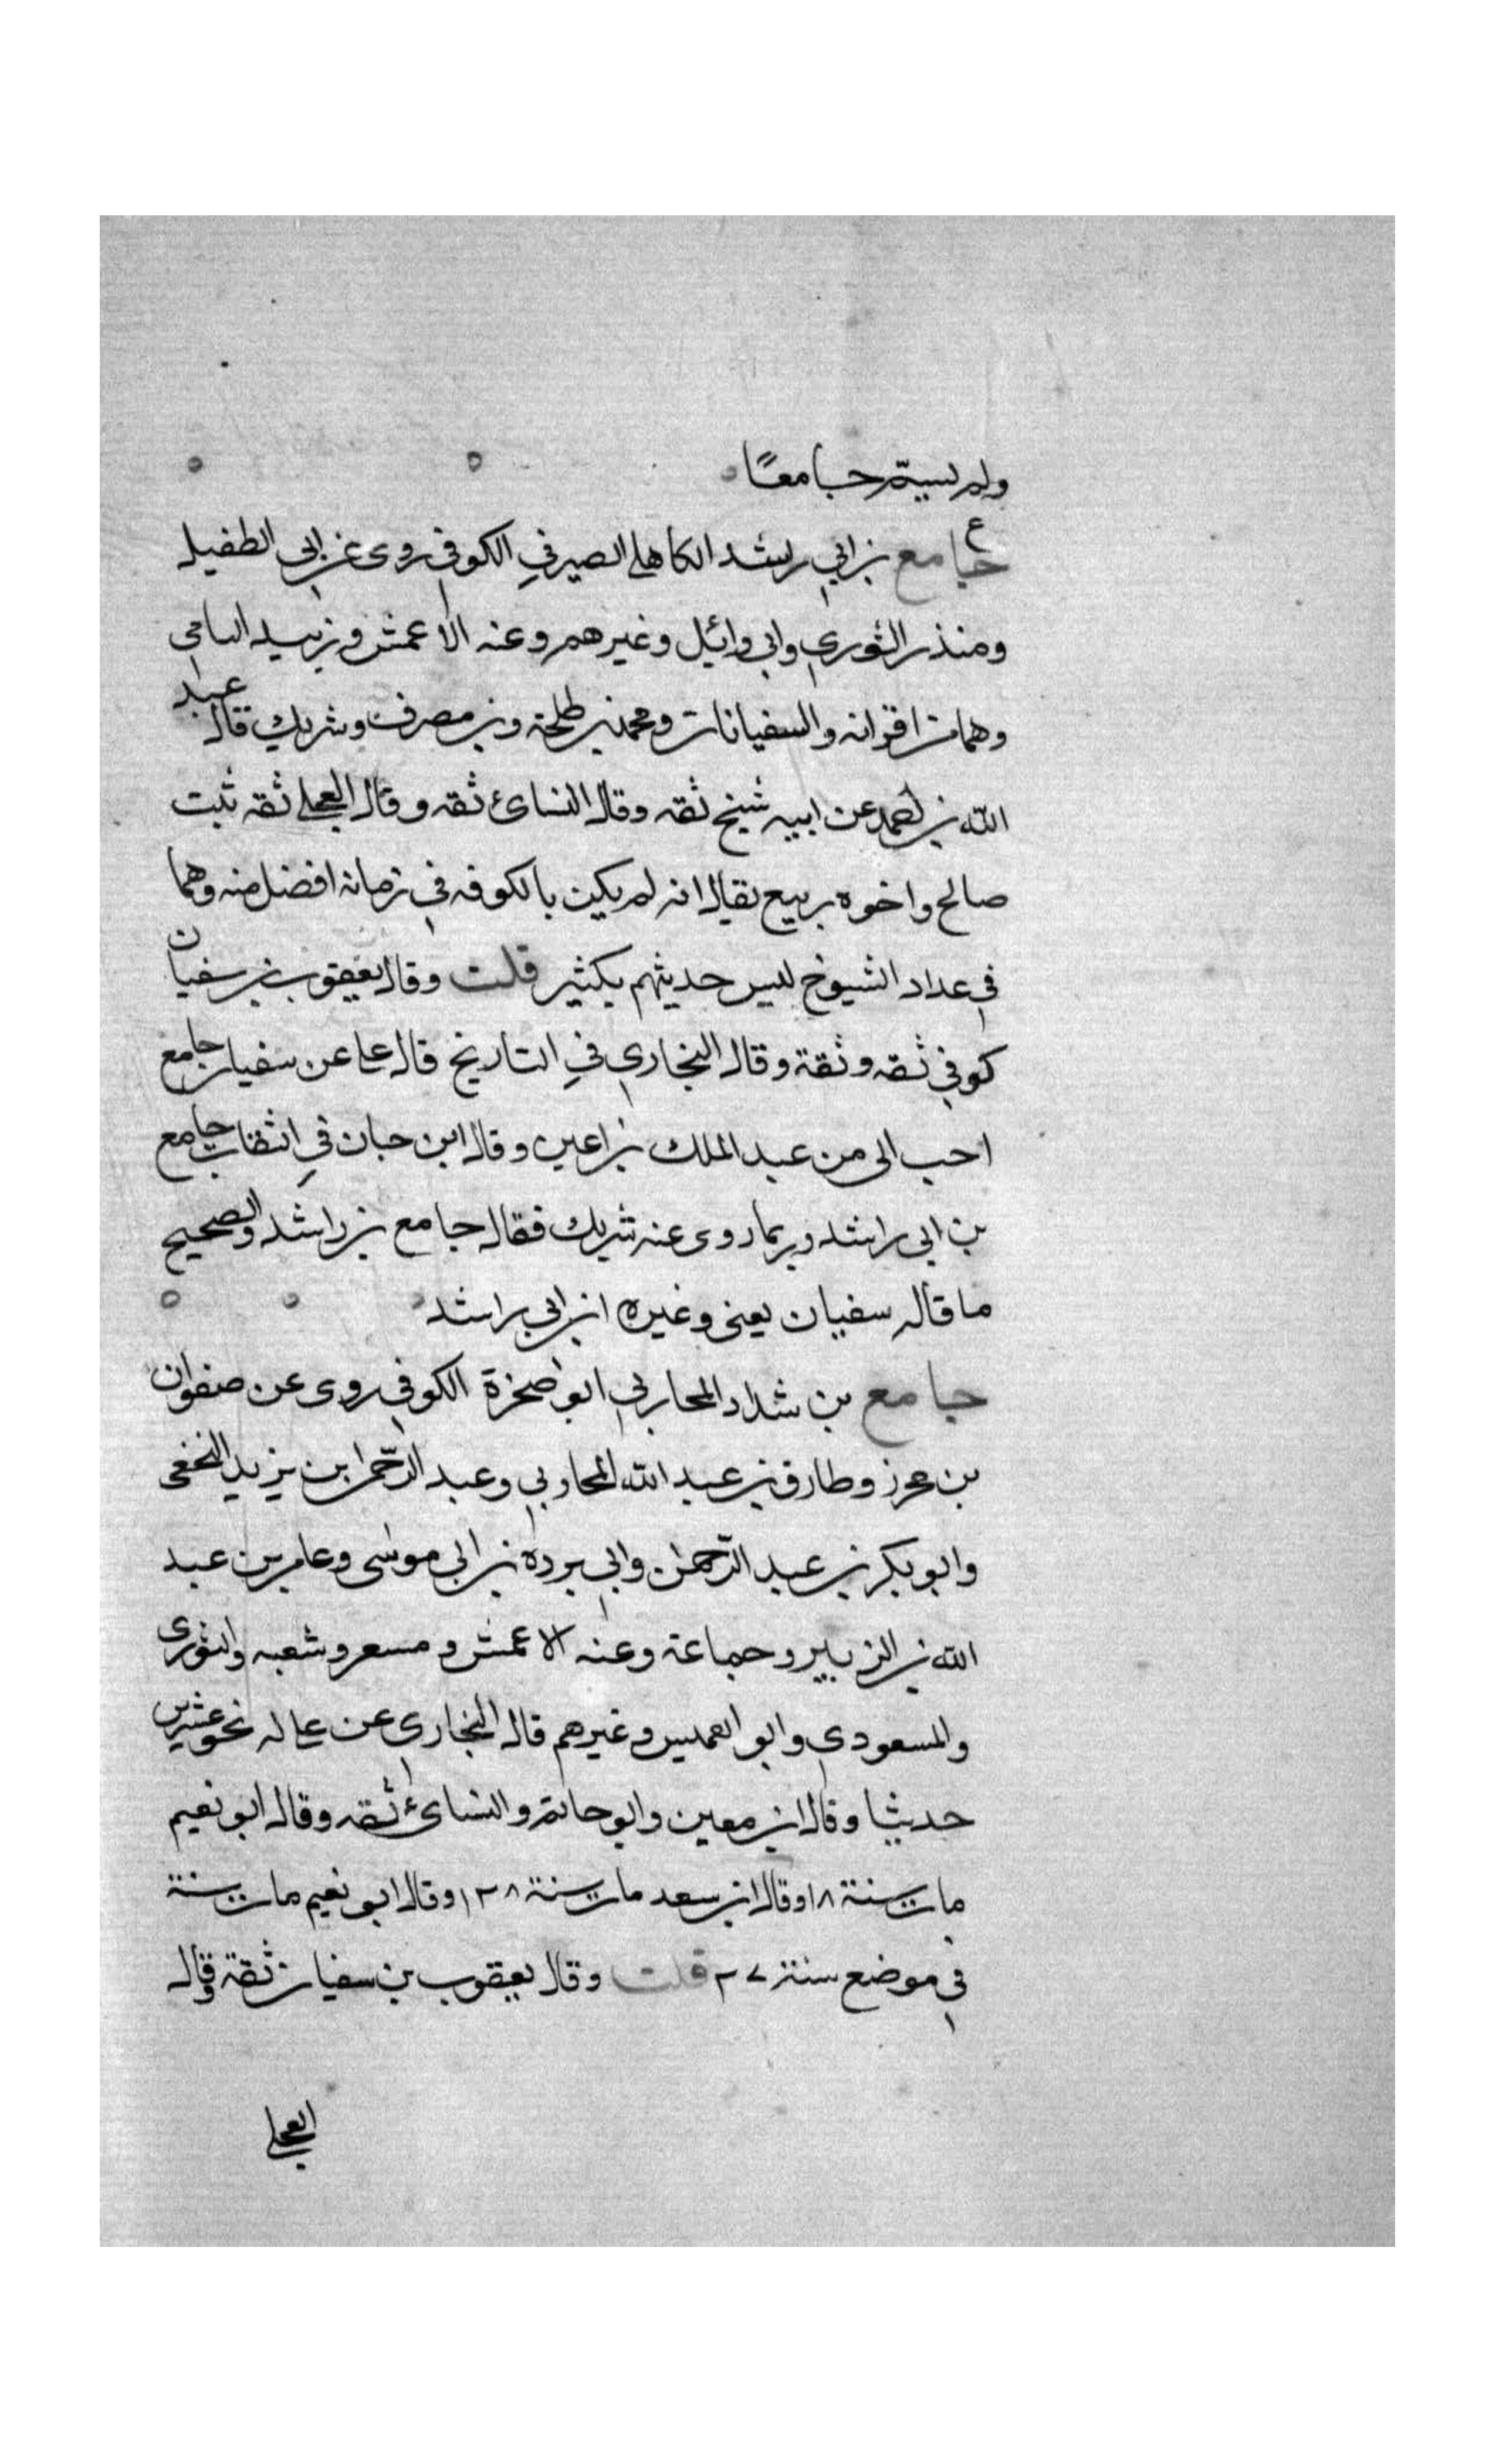 ولم يسم جامعًا
ع
جامع بن ابي راشد الكاهلي الصيرفي الكوفي روى عن ابي الطفيل
ومنذر الثوري وابي وائل وغيرهم وعنه الاعمش وزبيد اليامي
وهما من اقرانه والسفيانان ومحمد بن طلحة وبن مصرف وشريك قال عبد
الله بن احمد عن ابيه شيخ ثقه وقال النسائ ثقه وقال العجلي ثقه ثبت
صالح واخوه ربيع يقال انه لم يكن بالكوفه في زمانه افضل منه وهما
في عداد الشيوخ ليس حديثهم بكثير قلت وقال يعقوب بن سفيان
كوفي ثقه وثقة وقال البخاري في التاريخ قال علي عن سفيان جامع
احب الى من عبد الملك بن اعين وقال ابن حبان في الثقات جامع
بن ابي راشد وربما روى عنه شريك فقال جامع بن راشد والصحيح
ما قاله سفيان يعني وغيره ابن ابي راشد
جامع بن شداد المحاربي ابو صخرة الكوفي روى عن صفوان
بن محرز وطارق بن عبد الله المحاربي وعبد الرحمن بن يزيد النخعي
وابو بكر بن عبد الرحمن وابي بردة بن ابي موسى وعامر بن عبد
الله بن الزبير وجماعة وعنه الاعمش ومسعر وشعبه والثوري
والمسعودي وابو العميس وغيرهم قال البخاري عن علي له نحو عشرين
حديثا وقال ابن معين وابو حاتم والنسائ ثقه وقال ابو نعيم
مات سنة ١٨ وقال ابن سعد مات سنة ١٢٨ وقال ابو نعيم مات سنة
في موضع سنة ٢٧ قلت وقال يعقوب بن سفيان ثقة وقال
العجلي